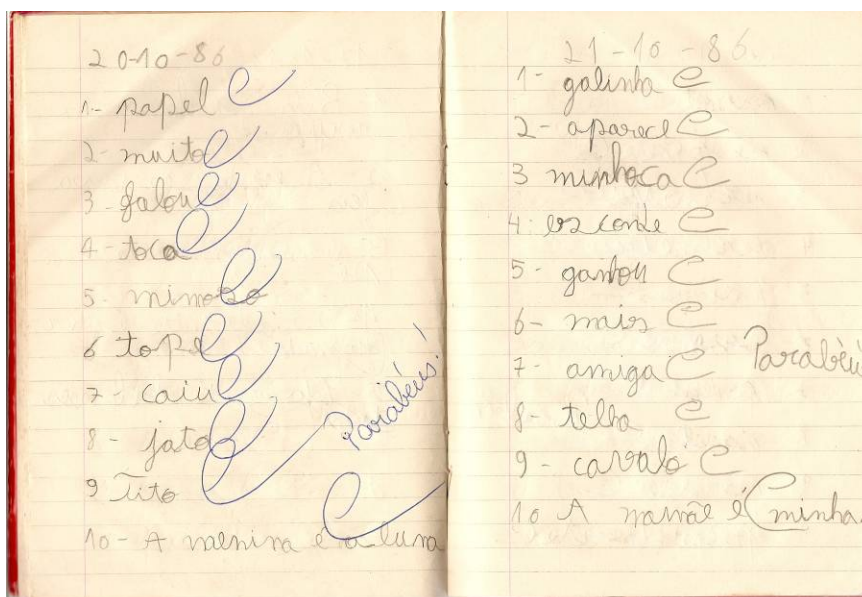 20-10-86
1- papel C
2- muito C
3- falou C
4- toca C
5- mimoso C
6 tope C
7- caiu C
8- jato C
9 Tito C
Parabéns!
10- A menina é a luna C
21-10-86
1- galinha C
2- aparece C
3 minhoca C
4: esconde C
5- ganhou C
6- mais C
7- amiga C
Parabéns
8- telha C
9- cavalo C
10 A mamãe é minha C